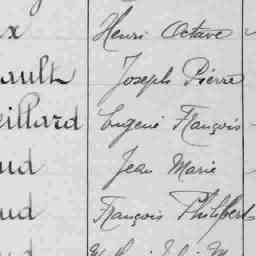 x Henri Octave
ault Joseph Pierre
eillard Eugène François
ud Jean Marie
ud François Philibert